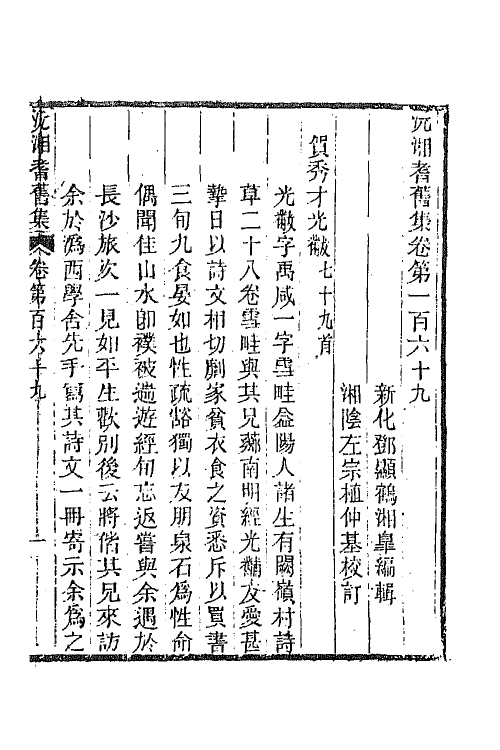 沅湘耆舊集卷第一百六十九
新化鄧顯鶴湘皐編輯
湘陰左宗植仲基校訂
賀秀才光黻七十九首
光黻字禹咸一字雪畦益陽人諸生有關嶺村詩
草二十八卷雪畦與其兄蘇南明經光黼友愛甚
摯日以詩文相切劘家貧衣食之資悉斥以買書
三旬九食晏如也性疏豁獨以友朋泉石爲性命
偶聞佳山水卽襆被遄遊經旬忘返嘗與余遇於
長沙旅次一見如平生歡別後云將偕其兄來訪
余於潙西學舍先手寫其詩文一冊寄示余爲之
沅湘耆舊集
卷第百六十九
一